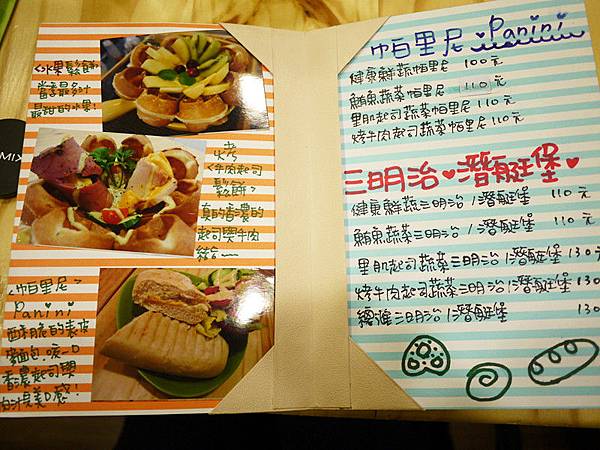 <水果鬆餅>
當季最多汁
最甜的水果!
<烤
牛肉起司
鬆餅>
真的香濃的
起司與牛肉
結合~~
<帕里尼>
Panini
酥脆的表皮
麵包, 咬一口
香濃起司與
肉汁完美口感!
MIX
帕里尼 Panini
健康鮮蔬帕里尼 100元
鮪魚蔬菜帕里尼 110元
里肌起司蔬菜帕里尼 110元
烤牛肉起司蔬菜帕里尼 110元
三明治♥潛艇堡♥
健康鮮蔬三明治/潛艇堡 110元
鮪魚蔬菜三明治/潛艇堡 110元
里肌起司蔬菜三明治/潛艇堡 130元
烤牛肉起司蔬菜三明治/潛艇堡 130
總匯三明治/潛艇堡 130